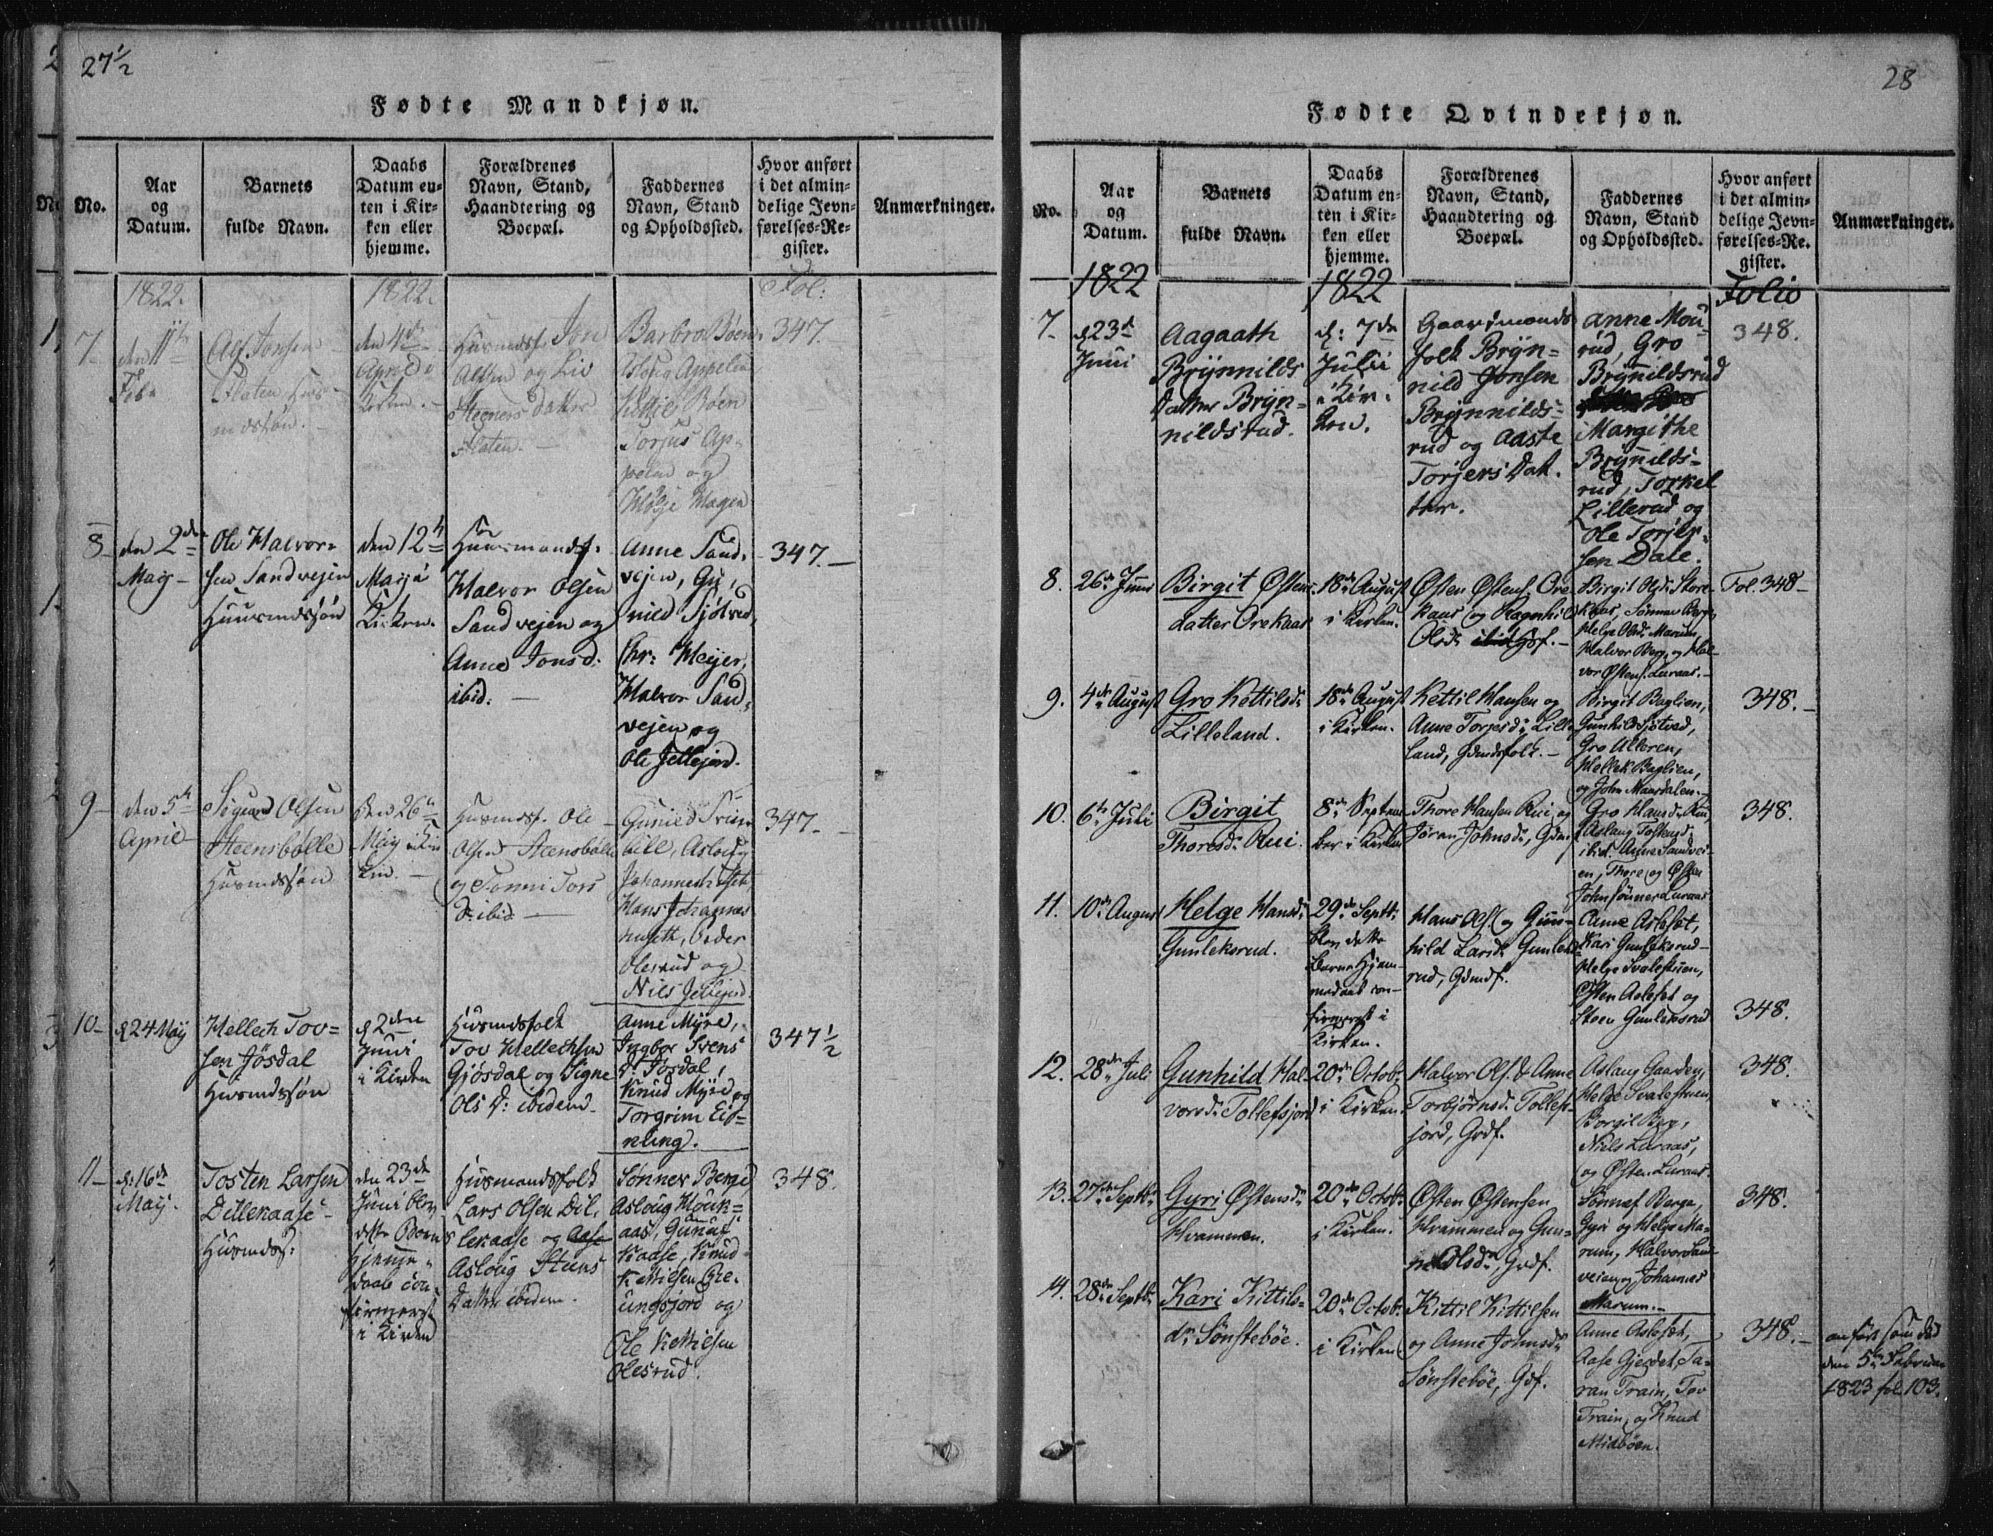 27½
Fødte Mandkjøn.
No.
Aar
og
Datum.
Barnets
fulde Navn.
Daabs
Datum en-
ten i Kir-
ken eller
hjemme.
Forældrenes
Navn, Stand,
Haandtering og
Boepæl.
Faddernes
Navn, Stand
og Opholdssted.
Hvor anført
i det almin-
delige Jevn-
førelses-Re-
gister.
Anmærkninger.
1822.
1822.
Fol:
7
den 11te
Feb.
Alf Jonsen
Flaten
den 4de
April i
Kirken.
Jon
Alfsen og Liv
Steeners Datter
Flaten.
Barbro Bøen,
Aslaug
Kittil Bøen
Torjus
og
Hagen
347.
8
den 2den
Maji
Ole Halvor-
sen Sandvejen
Huusmdssøn
den 12te
Maji i
Kirken.
Huusmandsf.
Halvor Olsen
Sandvejen og
Anne Jonsd:
ibid:
Anne Sand-
vejen, Gu-
nild Sjøtved,
Chr: Meijer,
Halvor Sand-
vejen og
Ole Jellejord.
347.
9
den 5te
April
Sigurd Olsen
Steensbølle
Husmdssøn
den 26te
Maij i Kir-
ken.
Husmdsf. Ole
Olsen Steensbølle
og Tonni Tors
D: ibid
Gunild
Aslaug
Johannes
Hans Johannes
Peder
Olesrud og
Nils Jellejord.
347.
10
d 24 Maij
Hellech Tov-
sen Jøsdal
Husmdssøn
d 2den
Junii
i Kirken
Husmdsfolk
Tov Hellechsen
Gjøsdal og Signe
Ols D: ibidem
Anne Myre,
Ingbor Svens
D: Jøsdal,
Knud Myre og
Torgrim
347½
11
d: 16de
Maij.
Tosten Larsen
Dillekaase
Husmdss:
den 23de
Junii blev
dette Barns
Hjemme-
daab con-
firmeret
i Kirken
Husmandsfolk
Lars Olsen Dil-
lekaase og Aase
Asloug Steens
Datter ibidem.
Sønnev Berge
Asloug
Knud
Kittilsen
og
Ole Kittilsen
Olesrud.
348.
28
Fødte Qvindekjøn.
No.
Aar
og
Datum.
Barnets
fulde Navn.
Daabs
Datum en-
ten i Kir-
ken eller
hjemme.
Forældrenes
Navn, Stand,
Haandtering og
Boepæl.
Faddernes
Navn, Stand
og Opholdssted.
Hvor anført
i det almin-
delige Jevn-
førelses-Re-
gister.
Anmærkninger.
1822
1822
Folio
7.
d 23d
Junii
Aagaath
Brynnilds
Datter Bryn-
nildsrud.
d: 7de
Julii
i Kir-
ken.
Gaardmands
folk Bryn-
nild Jonsen
Brynnilds-
rud og Aaste
Torjers Dat-
ter.
Anne Mou-
rud, Gro
Brynildsrud
Margithe
Brynilds-
rud, Torkel
Lillerud og
Ole Torjer-
sen Dale.
348.
8.
26de Junii
Birgit Østens-
datter Orekaas
18de August
i Kirken.
Østen Østens. Ore-
kaas og Ragnhild
Olsd: ibid Gdf.
Birgit Olsd: Store-
kaas, Sønnev Berge
Helge Olsd: Marum,
Halvor Berg, og Hal-
vor Østens. Luraas.
Fol. 348
9.
4de August
Gro Kettilsd:
Lilleland.
18de August
i Kirken.
Kettil Hansen og
Anne Torjesd: Lille-
land, Gdmdsfolk.
Birgit Baglien,
Gunhild Sjøtved,
Gro Ulleren,
Hellek Baglien,
og John Maardalen.
348.
10.
6te Juli
Birgit
Thoresd: Rui.
8de Septem-
ber i Kirken
Thore Hansen Rui og
Jøran Johnsd:, Gdmdf
Gro Hansd: Rui
Aslaug Tostensd:
ibid: Anne Sandvei-
en, Thore og Østen
Johnsønner Luraas
348.
11.
10de August
Helge Hansd:
Gunleksrud.
29de Septbr:
blev dette
Barns Hjem-
medaab con-
firmeret i
Kirken.
Hans Ols. og Gun-
hild Larsd: Gunleks-
rud, Gdmdf.
Anne Aslefet,
Kari Gunleksrud
Helge Svalestuen,
Østen Aslefet og
Steen Gunleksrud
348.
12.
28de Juli
Gunhild Hal-
vorsd: Tollefsjord
20de Octobr
i Kirken.
Halvor Ols. & Anne
Torbjørnsd: Tollefs-
jord, Grdf.
Aslaug Gaarden,
Helge Svalestuen
Borgil Berg,
Niels Luraas,
og Østen Luraas.
348.
13.
27de Septbr
Gyri Østensd:
Hvammen.
20de Octobr
i Kirken.
Østen Østensen
Hvammen og Gun-
hil Olsd:, Grdf.
Sønnef Berge,
Gyri og Helge Ma-
rum, Halvor Sand-
veien og Johannes
Marum.
348.
14.
28de Septbr
Kari Kittils-
dr Sønstebøe.
20de Octobr
i Kirken
Kittil Kittilsen
og Anne Johnsd:
Sønstebøe, Gdf.
Anne Aslefet,
Aase Gjerdet, Ta-
ran Train, Tov
Train, og Knud
Midbøen.
348.
anført som død
den 5te Februar
1823 fol. 103.